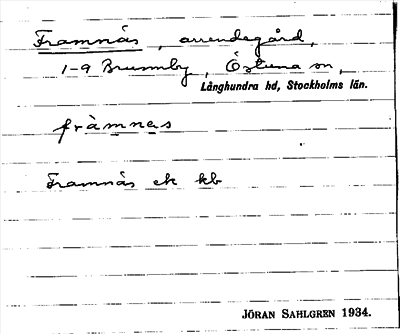 Framnäs, arrendegård,
1-9 Brunnby, Östuna sn,
Långhundra hd, Stockholms län.
fràmnęs
Framnäs ek kb
JÖRAN SAHLGREN 1934.